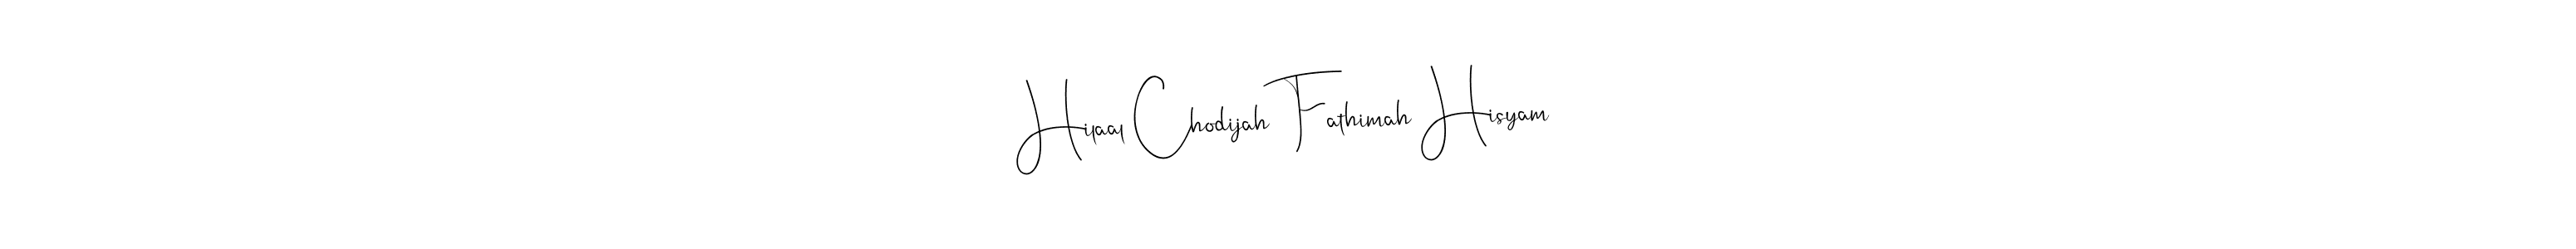 Hilaal Chodijah Fathimah Hisyam